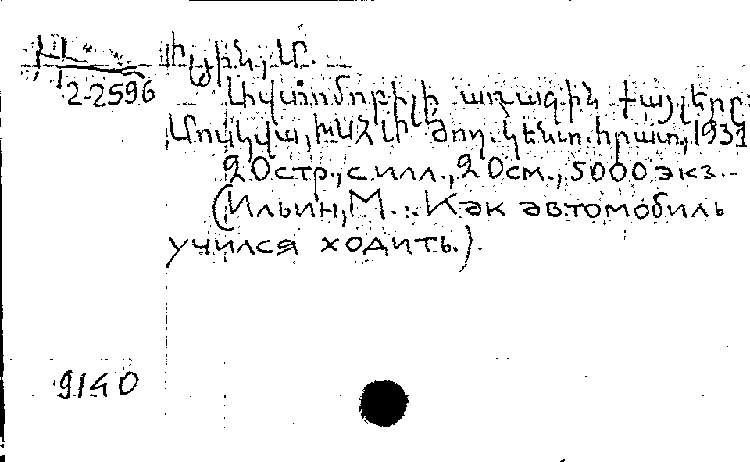 Իլյին, Մ.
2-2596
Ավտոմոբիլի առաջին քայլերը
Մոսկվա, ԽՍՀՄ ժող. կենտ. հրատ., 1931
20 стр., с илл., 20 см., 5000 экз. —
(Ильин, М. : Как автомобиль
учился ходить.).
9140